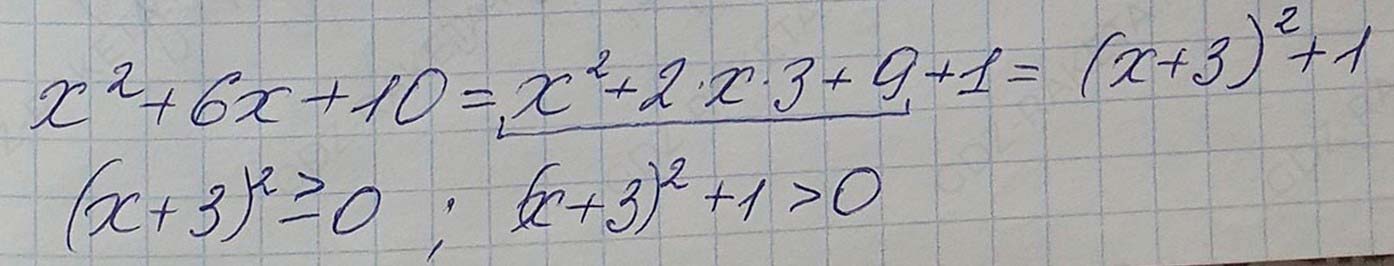 x² + 6x + 10 = x² + 2·x·3 + 9 + 1 = (x+3)² + 1
(x+3)² ≥ 0 ; (x+3)² + 1 > 0